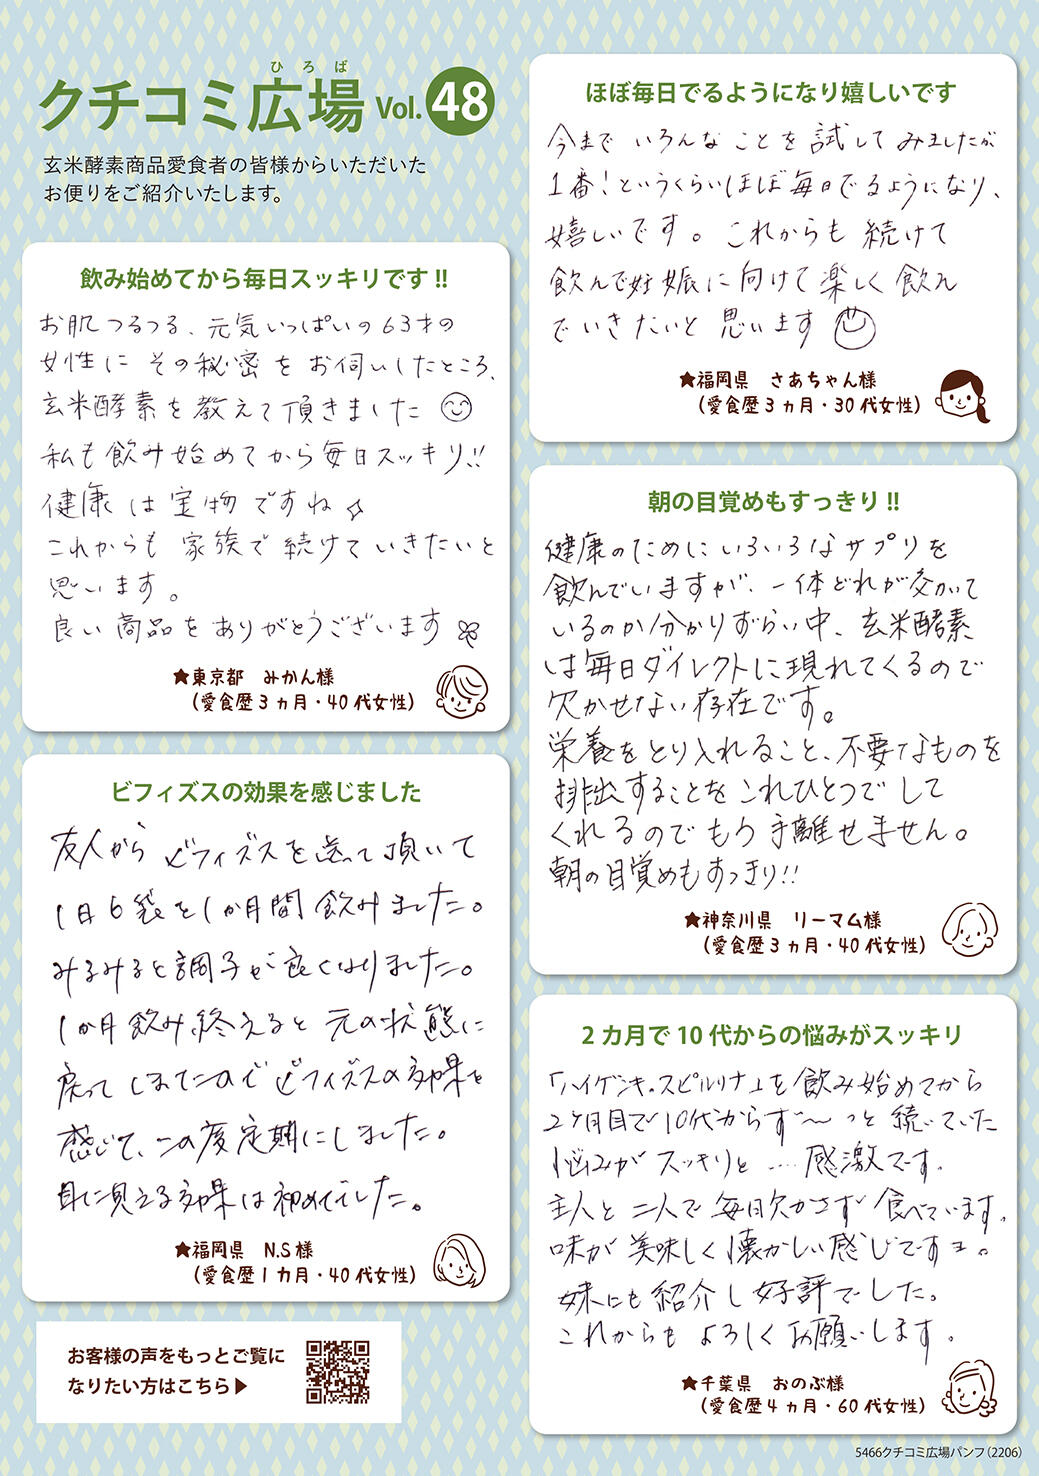 ひろば
クチコミ広場 Vol.48
玄米酵素商品愛食者の皆様からいただいた
お便りをご紹介いたします。
飲み始めてから毎日スッキリです!!
お肌つるつる、元気いっぱいの63才の
女性に その秘密を お伺いしたところ、
玄米酵素を教えて頂きました
私も飲み始めてから毎日スッキリ!!
健康は宝物ですね
これからも 家族で 続けていきたいと
思います。
良い商品をありがとうございます
★東京都 みかん様
(愛食歴3ヵ月・40代女性)
ビフィズスの効果を感じました
友人からビフィズスを送って頂いて
1日6袋を1か月間飲みました。
みるみると調子が良くなりました。
1か月飲み終えると元の状態に
戻ってしまったのでビフィズスの効果を
感じて、この度定期にしました。
目に見える効果は初めてでした。
★福岡県 N.S様
(愛食歴1カ月・40代女性)
お客様の声をもっとご覧に
なりたい方はこちら▶
ほぼ毎日でるようになり嬉しいです
今まで いろんな ことを 試して みましたが
1番!というくらいほぼ毎日でるようになり、
嬉しいです。これからも 続けて
飲んで妊娠に向けて楽しく飲ん
でいきたいと 思います
★福岡県 さあちゃん様
(愛食歴3ヵ月・30代女性)
朝の目覚めもすっきり!!
健康のためにいろいろなサプリを
飲んでいますが、一体どれが効いて
いるのか分かりずらい中、玄米酵素
は毎日ダイレクトに現れてくるので
欠かせない存在です。
栄養をとり入れること、不要なものを
排出することをこれひとつでして
くれるのでもう手離せません。
朝の目覚めもすっきり!!
★神奈川県 リーマム様
(愛食歴3ヵ月・40代女性)
2カ月で10代からの悩みがスッキリ
「ハイゲンキ・スピルリナ」を飲み始めてから
2ヶ月目で10代からず〜っと続いていた
悩みがスッキリと….感激です。
主人と二人で毎日欠かさず食べています。
味が美味しく懐かしい感じですヨ。
妹にも紹介し好評でした。
これからもよろしくお願いします。
★千葉県 おのぶ様
(愛食歴4ヵ月・60代女性)
5466クチコミ広場パンフ(2206)